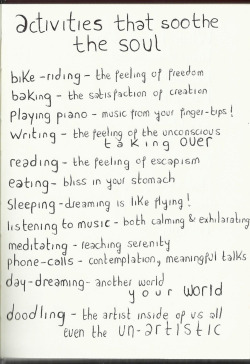 activities that soothe
the soul
bike-riding - the feeling of freedom
baking - the satisfaction of creation
playing piano - music from your finger-tips!
writing - the feeling of the unconscious
taking over
reading - the feeling of escapism
eating - bliss in your stomach
sleeping - dreaming is like flying!
listening to music - both calming & exhilarating
meditating - reaching serenity
phone-calls - contemplation, meaningful talks
day-dreaming - another world
your world
doodling - the artist inside of us all
even the un-artistic